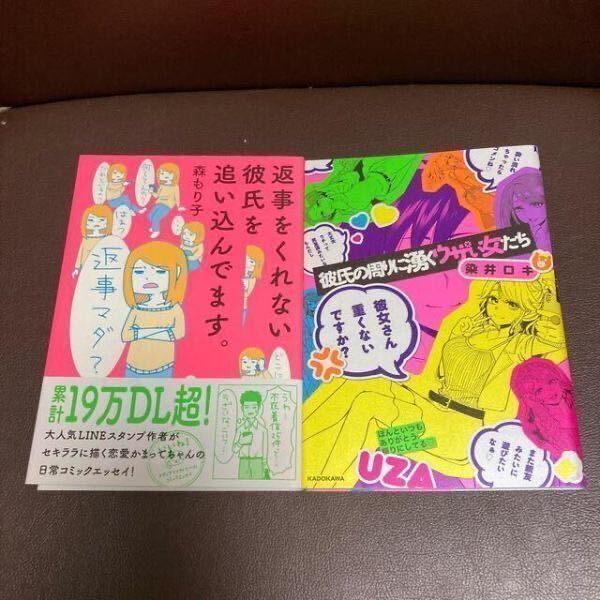 返事をくれない
彼氏を
追い込んでます。
森もり子
はぁ？
返事マダ？
累計19万DL超！
大人気LINEスタンプ作者が
セキララに描く恋愛かまってちゃんの
日常コミックエッセイ！
彼氏の周りに湧くウザい女たち
染井ロキ
彼女さん
重くない
ですか？
ほんといつも
ありがとう
頼りにしてる
また親友
みたいに
遊びたい
なぁ
UZA
KADOKAWA